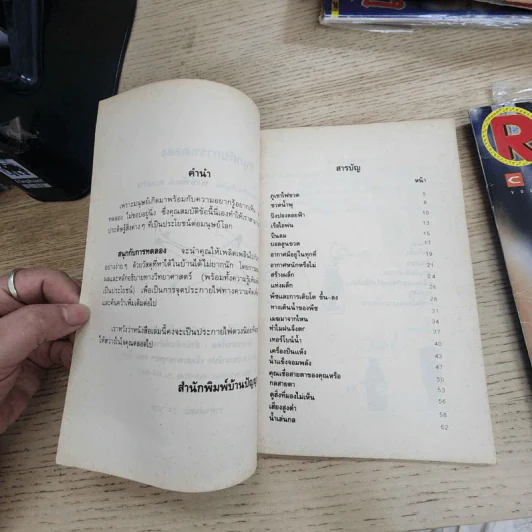 คำนำ
เพราะมนุษย์เกิดมาพร้อมกับความอยากรู้อยากเห็น
ทดลอง ไม่ชอบอยู่นิ่ง ซึ่งคุณสมบัติข้อนี้นี่เองทำให้เรา
ประดิษฐ์สิ่งต่างๆ ที่เป็นประโยชน์ต่อมนุษย์โลก
สนุกกับการทดลอง จะนำคุณให้เพลิดเพลิน
อย่างง่ายๆ ด้วยวัสดุที่หาได้ในบ้านได้ไม่ยากนัก
ผลและหลักอธิบายทางวิทยาศาสตร์ (พร้อมทั้งความรู้
เป็นประโยชน์) เพื่อเป็นการจุดประกายไฟทางความคิด
และค้นคว้าเพิ่มเติมต่อไป
เราหวังว่าหนังสือเล่มนี้คงจะเป็นประกายไฟดวงน้อย
ให้สว่างในใจคุณตลอดไป
สำนักพิมพ์บ้านปัญญา
สารบัญ
หน้า
ภูเขาไฟขวด 5
ขวดน้ำพุ 8
ปิงปองลอยฟ้า 10
เรือไอพ่น 13
ปืนลม 15
บอลลูนขวด 17
อากาศมีอยู่ในทุกที่
อากาศหนักหรือไม่
สร้างผลึก 24
แท่งผลึก
พืชและการเติบโต ขึ้น-ลง 28
ทางเดินน้ำของพืช 31
เมฆมาจากไหน 34
ทำไมฝนจึงตก 37
เทอร์โบน้ำ 40
เครื่องปั่นแห้ง 43
น้ำแข็งจอมพลัง 48
คุณเชื่อสายตาของคุณหรือ 50
กลสายตา 53
ดูสิ่งที่มองไม่เห็น 56
เสียงสูงต่ำ 58
น้ำเล่นกล 62
R